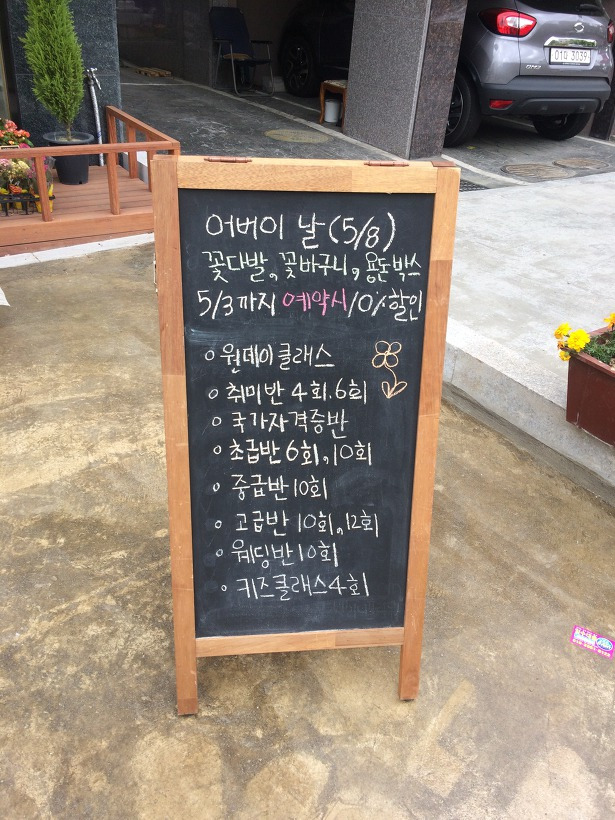 어버이 날 (5/8)
꽃다발, 꽃바구니, 용돈박스
5/3까지 예약시 10% 할인
o 원데이 클래스
o 취미반 4회. 6회
o 국가자격증반
o 초급반 6회, 10회
o 중급반 10회
o 고급반 10회, 12회
o 웨딩반 10회
o 키즈클래스 4회